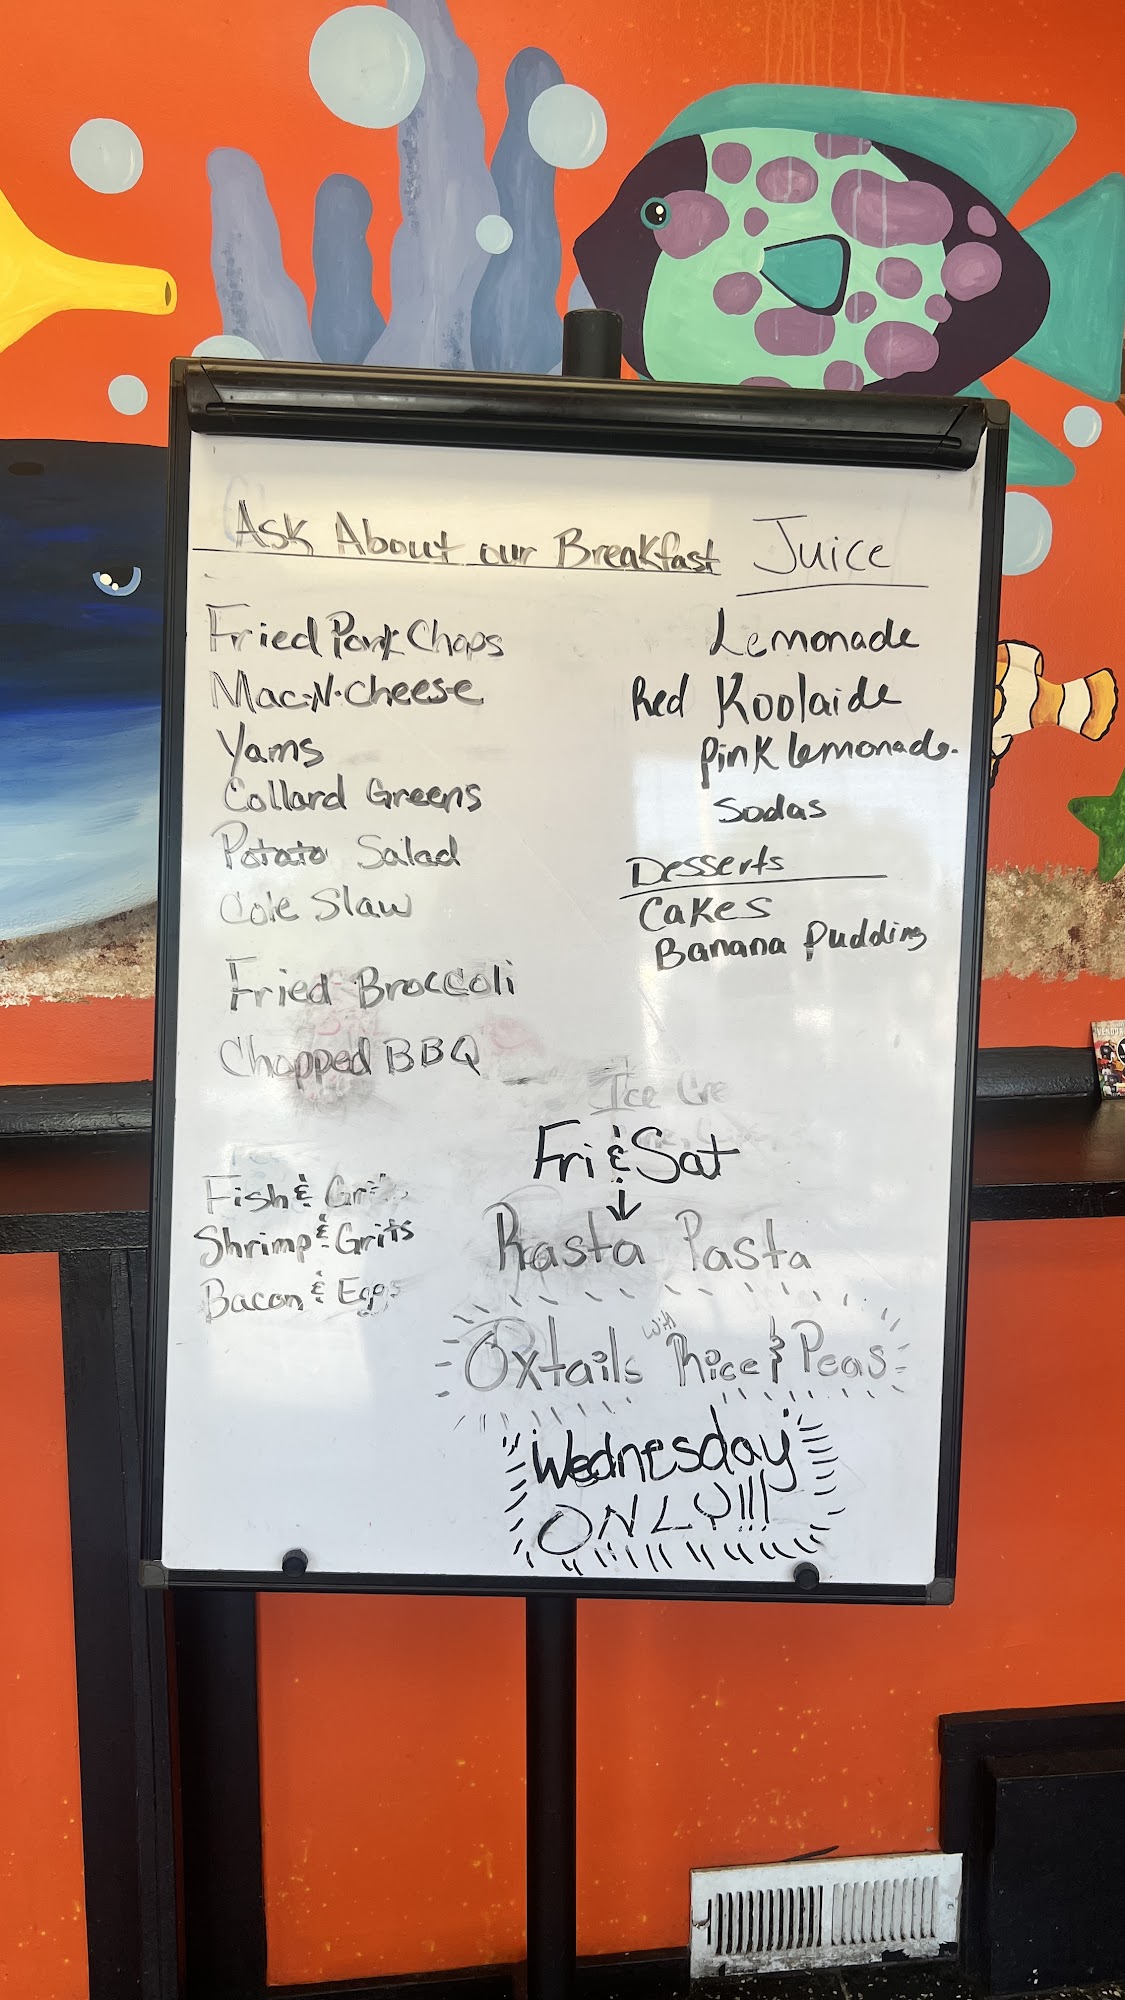 Ask About our Breakfast
Fried Pork Chops
Mac-N-Cheese
Yams
Collard Greens
Potato Salad
Cole Slaw
Fried Broccoli
Chopped BBQ
Fish & Grits
Shrimp & Grits
Bacon & Eggs
Juice
Lemonade
Red Koolaide
Pink lemonade.
Sodas
Desserts
Cakes
Banana Pudding
Ice Cre
Fri & Sat
Rasta Pasta
Oxtails with Rice & Peas
Wednesday
ONLY!!!